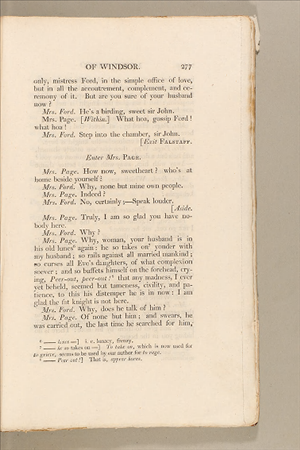 OF WINDSOR. 277
only, mistress Ford, in the simple office of love,
but in all the accoutrement, complement, and ce-
remony of it. But are you sure of your husband
now?
Mrs. Ford. He's a birding, sweet sir John.
Mrs. Page. [Within.] What hoa, gossip Ford!
what hoa!
Mrs. Ford. Step into the chamber, sir John.
[Exit FALSTAFF.
Enter Mrs. PAGE.
Mrs. Page. How now, sweetheart? who's at
home beside yourself?
Mrs. Ford. Why, none but mine own people.
Mrs. Page. Indeed?
Mrs. Ford. No, certainly;—Speak louder.
[Aside.
Mrs. Page. Truly, I am so glad you have no-
body here.
Mrs. Ford. Why?
Mrs. Page. Why, woman, your husband is in
his old lunes again: he so takes on yonder with
my husband; so rails against all married mankind;
so curses all Eve's daughters, of what complexion
soever; and so buffets himself on the forehead, cry-
ing, Peer-out, peer-out! that any madness, I ever
yet beheld, seemed but tameness, civility, and pa-
tience, to this his distemper he is in now: I am
glad the fat knight is not here.
Mrs. Ford. Why, does he talk of him?
Mrs. Page. Of none but him; and swears, he
was carried out, the last time he searched for him,
— lunes —] i. e. lunacy, frenzy.
— he so takes on —] To take on, which is now used for
to grieve, seems to be used by our author for to rage.
— Peer out!] That is, appear horns.